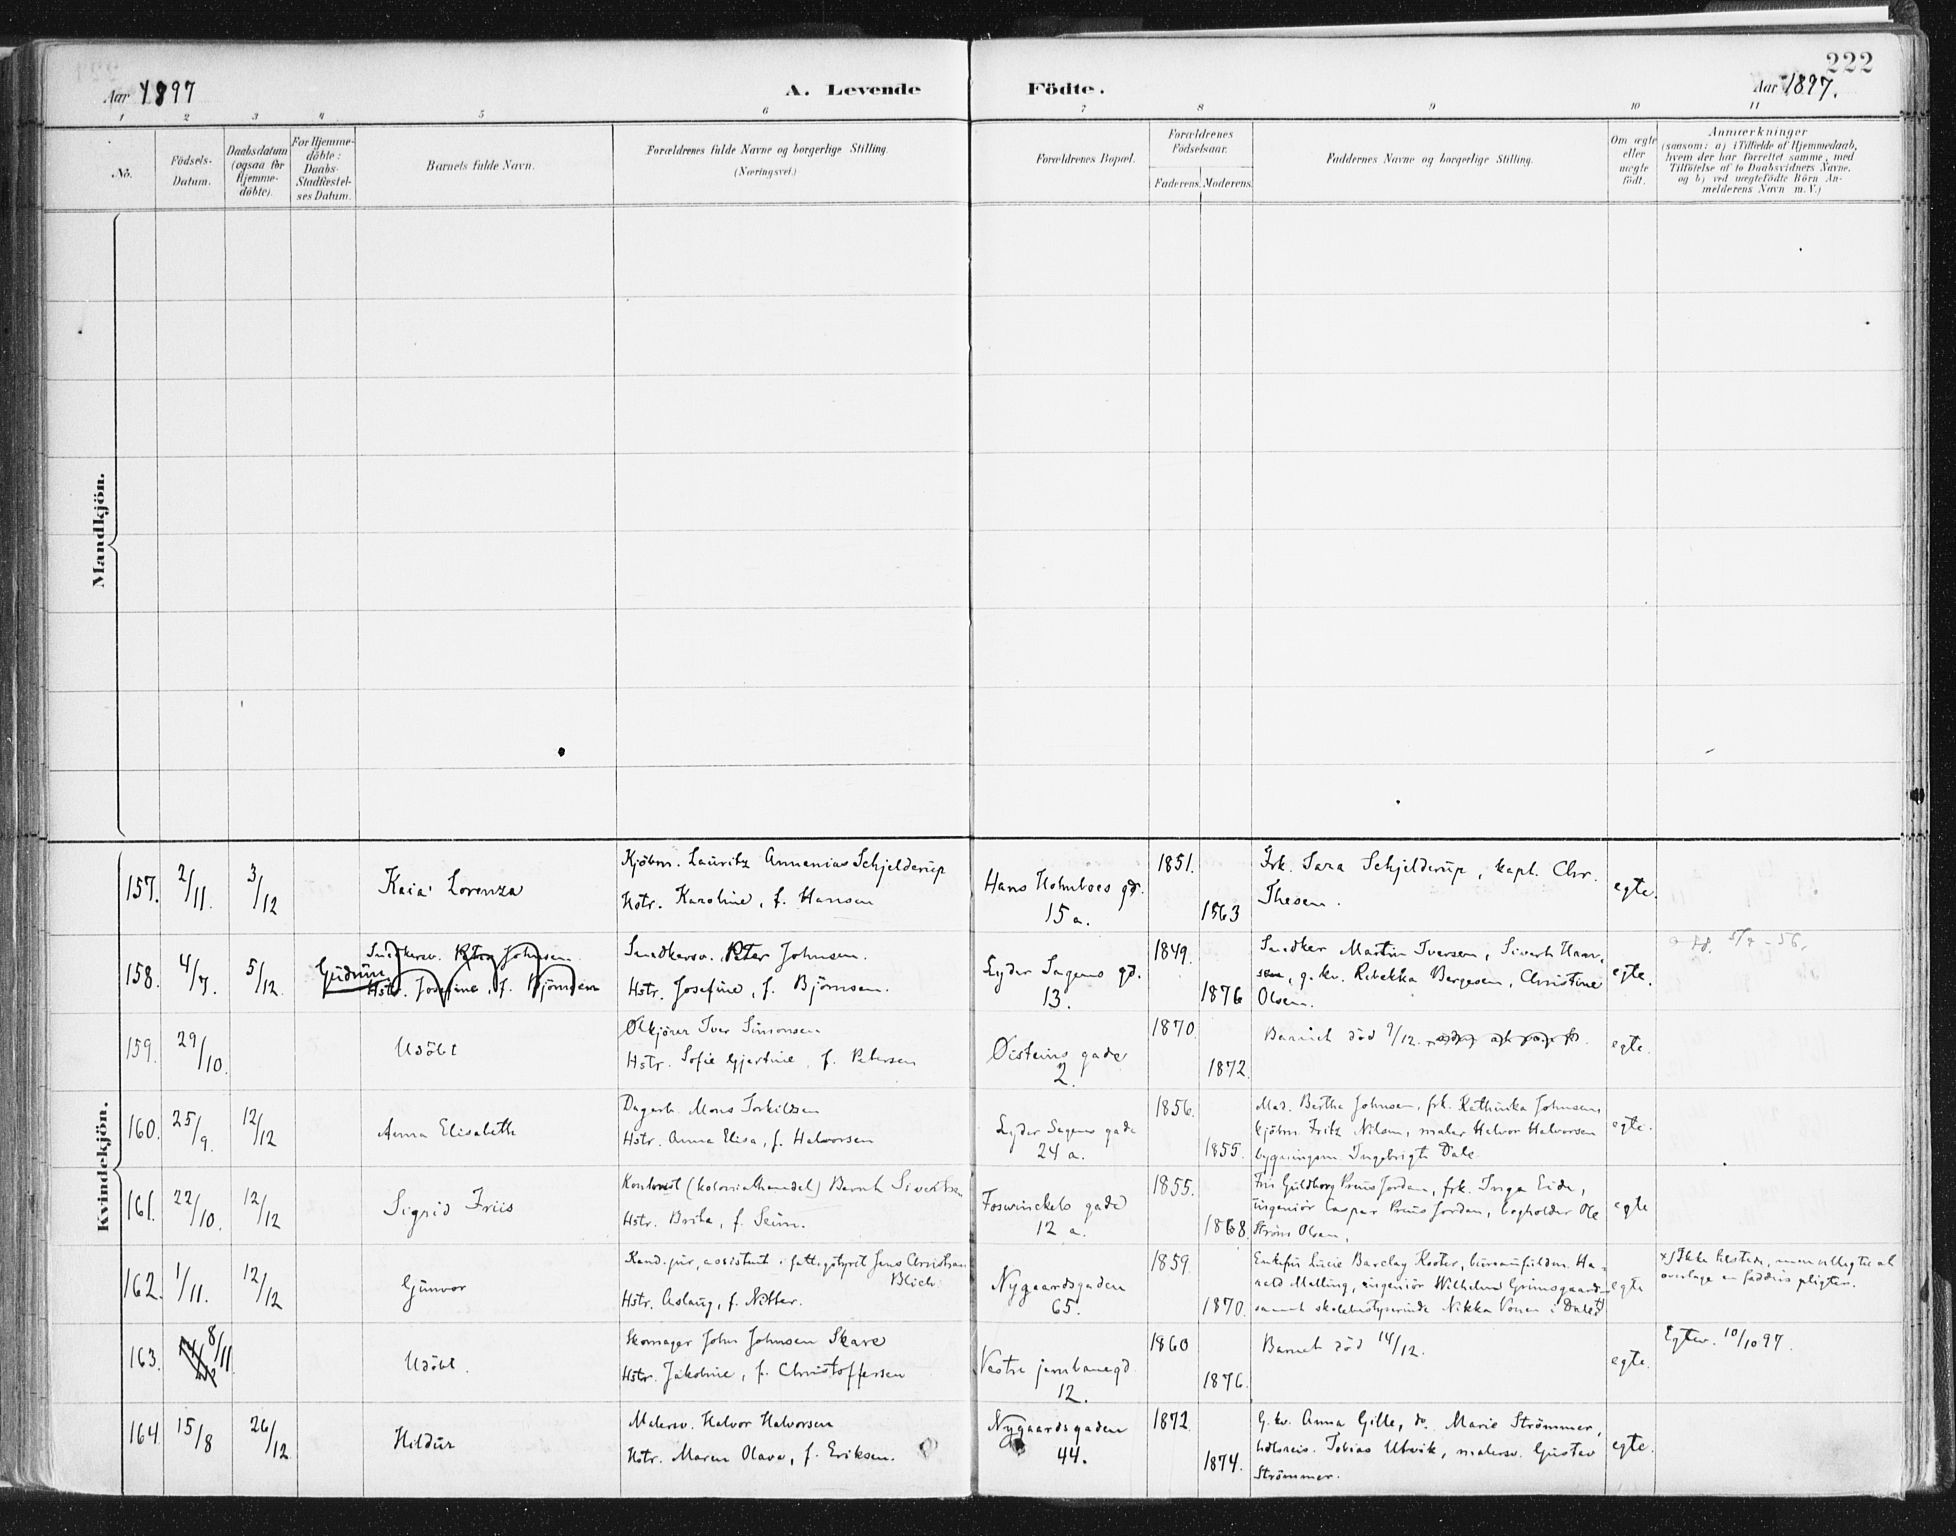 222
Aar 1897
A. Levende
Födte.
Aar 1897.
1 2 3 4 5 6 7 8 9 10 11
No.
Födsels-
Datum.
Daabsdatum
(ogsaa for
Hjemme-
döbte).
For Hjemme-
döbte:
Daabs-
Stadfæstel-
ses Datum.
Barnets fulde Navn.
Forældrenes fulde Navne og borgerlige Stilling.
(Næringsvei.)
Forældrenes Bopæl.
Forældrenes
Födselsaar.
Faderens. Moderens.
Faddernes Navne og borgerlige Stilling.
Om ægte
eller
uægte
födt.
Anmærkninger
(saasom: a) i Tilfælde af Hjemmedaab,
hvem der har forrettet samme, med
Tilföielse af to Daabsvidners Navne,
og b) ved uægtefödte Börn An-
melderens Navn m. V.)
Mandkjön.
Kvindekjön.
157. 2/11. 3/12
Kaia Lorenza
Kjöbm. Lauritz Annanias Schjelderup
Hstr. Karoline, f. Hansen
Hans Holmboes gd.
15 a.
1851.
1863
Frk. Sara Schjelderup, kapt. Chr.
Thesen.
egte.
158. 4/7. 5/12.
Gudrun
Snedkersv. Peter Johnsen.
Hstr. Josefine, f. Björnsen
Snedkersv. Peter Johnsen.
Hstr. Josefine, f. Björnsen.
Lyder Sagens gd.
13.
1849.
1876
Snedker Martin Iversen, Sivert Han-
sen, g. kv. Rebekka Bergesen, Christine
Olsen.
egte.
159. 29/10.
Udöbt
Ölkjörer Iver Simonsen
Hstr. Sofie Gjertine, f. Petersen
Öisteins gade
2.
1870.
1872.
Barnet död 9/12.
egte.
160. 25/9. 12/12
Anna Elisabeth
Dagarb. Mons Torkildsen
Hstr. Anna Elisa, f. Halvorsen
Lyder Sagens gade
24 a.
1856.
1855.
Mad. Bertha Johnsen, frk. Kathinka Johnsen,
kjöbm. Fritz Nilsen, maler Halvor Halvorsen
bygningsm. Ingebrigt Dale
egte.
161. 22/10. 12/12
Sigrid Friis
(kolonialhandel) Bernt Sivertsen
Hstr. Brita, f. Seim.
Foswinckels gade
12 a.
1855.
1868.
Fru Guldborg Preus Jordan, frk. Inga Eide,
ingeniör Caspar Preus Jordan, bogholder Ole
Olsen.
egte
162. 1/11. 12/12
Gunvor
Kand. jur., assistent i fattigstyret Jens Christian
Blich
Hstr. Aslaug, f. Nitter.
Nygaardsgaden
65.
1859.
1870.
Enkefru Lucie Barclay Koster, Ha-
rald Malling, ingeniör Wilhelm Grimsgaard
samt skolebestyrerinde Nikka Vonen i Dale x)
egte
x) Ikke tilstede, men villig til at
overtage en fadders pligter.
163. 8/11.
Udöbt.
Skomager John Johnsen Skare
Hstr. Jakobine, f. Christoffersen
Vestre jernbanegd
12.
1860
1876.
Barnet död 14/12.
egte.
Egtev. 10/10 97.
164. 15/8 26/12.
Hildur
Malersv. Halvor Halvorsen
Hstr. Maren Olava, f. Eriksen.
Nygaardsgaden
44.
1872.
1874.
G. kv. Anna Gille, do. Marie Strömmer,
Tobias Utvik, malersv. Gustav
Strömmer.
egte.